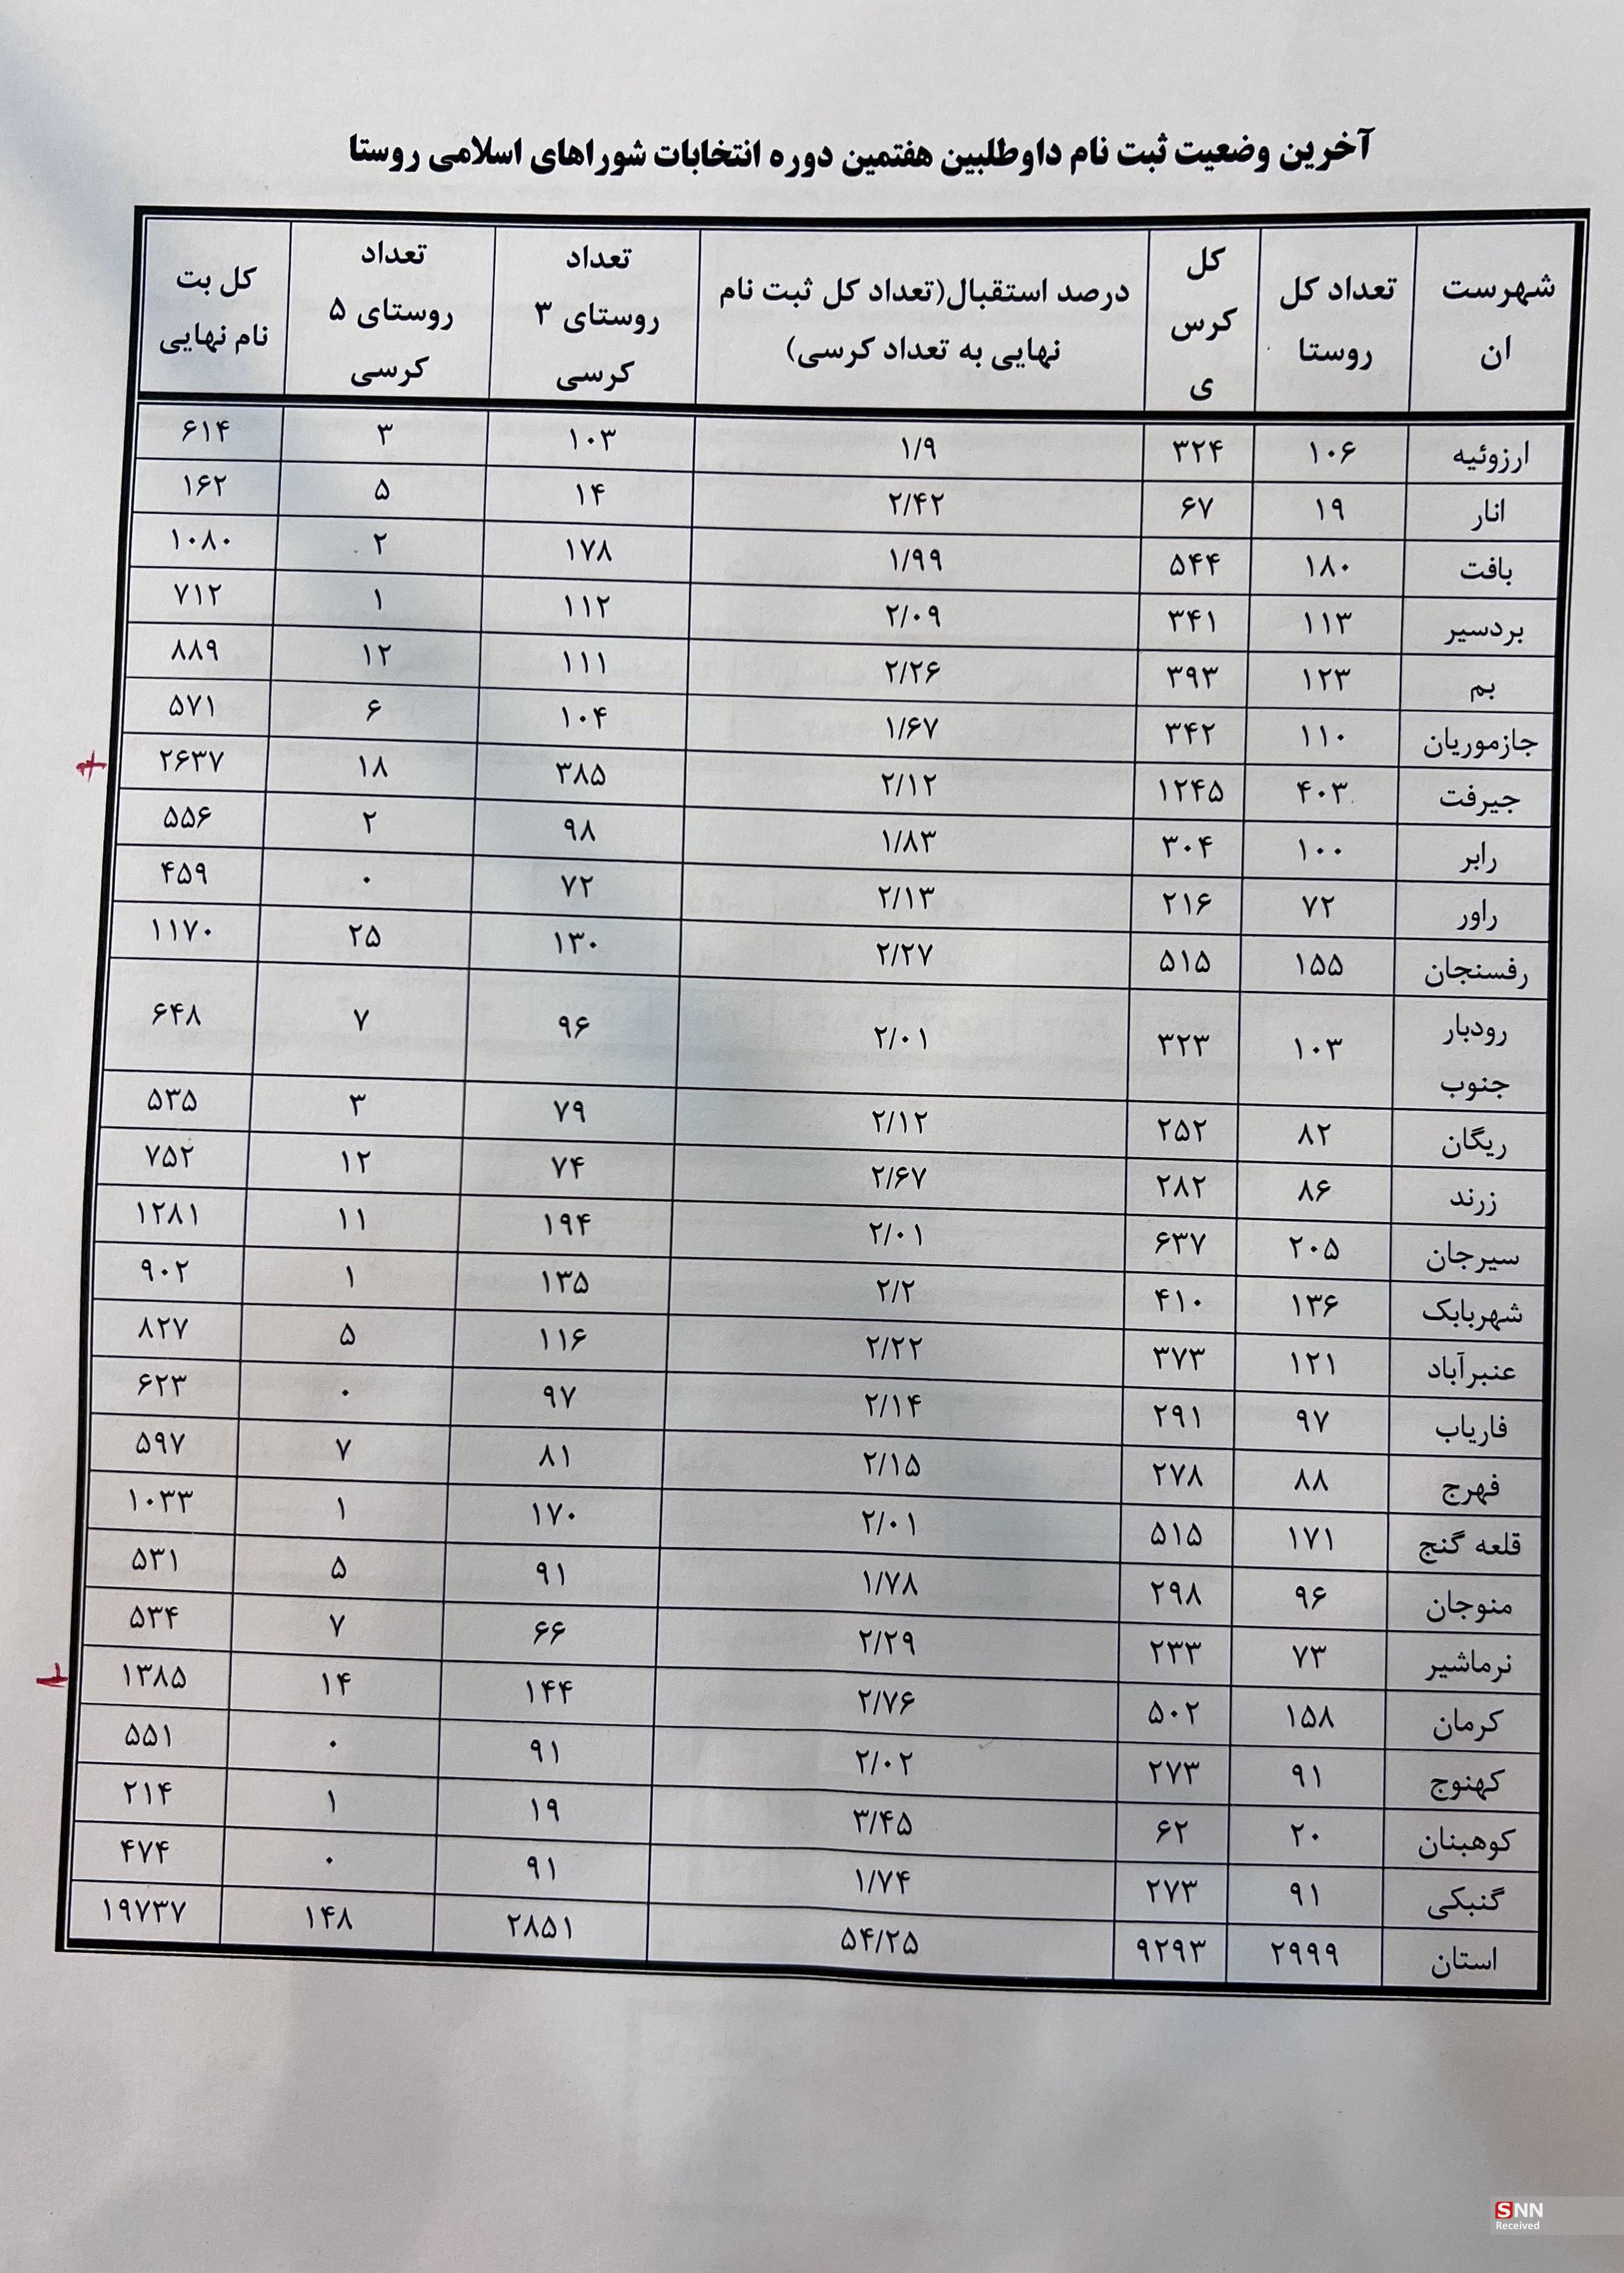 آخرین وضعیت ثبت نام داوطلبین هفتمین دوره انتخابات شوراهای اسلامی روستا
شهرست ان | تعداد کل روستا | کل کرس ی | درصد استقبال(تعداد کل ثبت نام نهایی به تعداد کرسی) | تعداد روستای ۳ کرسی | تعداد روستای ۵ کرسی | کل بت نام نهایی
ارزوئیه | ۱۰۶ | ۳۲۴ | ۱/۹ | ۱۰۳ | ۳ | ۶۱۴
انار | ۱۹ | ۶۷ | ۲/۴۲ | ۱۴ | ۵ | ۱۶۲
بافت | ۱۸۰ | ۵۴۴ | ۱/۹۹ | ۱۷۸ | ۲ | ۱۰۸۰
بردسیر | ۱۱۳ | ۳۴۱ | ۲/۰۹ | ۱۱۲ | ۱ | ۷۱۲
بم | ۱۲۳ | ۳۹۳ | ۲/۲۶ | ۱۱۱ | ۱۲ | ۸۸۹
جازموریان | ۱۱۰ | ۳۴۲ | ۱/۶۷ | ۱۰۴ | ۶ | ۵۷۱
جیرفت | ۴۰۳ | ۱۲۴۵ | ۲/۱۲ | ۳۸۵ | ۱۸ | ۲۶۳۷
رابر | ۱۰۰ | ۳۰۴ | ۱/۸۳ | ۹۸ | ۲ | ۵۵۶
راور | ۷۲ | ۲۱۶ | ۲/۱۳ | ۷۲ | ۰ | ۴۵۹
رفسنجان | ۱۵۵ | ۵۱۵ | ۲/۲۷ | ۱۳۰ | ۲۵ | ۱۱۷۰
رودبار جنوب | ۱۰۳ | ۳۲۳ | ۲/۰۱ | ۹۶ | ۷ | ۶۴۸
ریگان | ۸۲ | ۲۵۲ | ۲/۱۲ | ۷۹ | ۳ | ۵۳۵
زرند | ۸۶ | ۲۸۲ | ۲/۶۷ | ۷۴ | ۱۲ | ۷۵۲
سیرجان | ۲۰۵ | ۶۳۷ | ۲/۰۱ | ۱۹۴ | ۱۱ | ۱۲۸۱
شهربابک | ۱۳۶ | ۴۱۰ | ۲/۲ | ۱۳۵ | ۱ | ۹۰۲
عنبرآباد | ۱۲۱ | ۳۷۳ | ۲/۲۲ | ۱۱۶ | ۵ | ۸۲۷
فاریاب | ۹۷ | ۲۹۱ | ۲/۱۴ | ۹۷ | ۰ | ۶۲۳
فهرج | ۸۸ | ۲۷۸ | ۲/۱۵ | ۸۱ | ۷ | ۵۹۷
قلعه گنج | ۱۷۱ | ۵۱۵ | ۲/۰۱ | ۱۷۰ | ۱ | ۱۰۳۳
منوجان | ۹۶ | ۲۹۸ | ۱/۷۸ | ۹۱ | ۵ | ۵۳۱
نرماشیر | ۷۳ | ۲۳۳ | ۲/۲۹ | ۶۶ | ۷ | ۵۳۴
کرمان | ۱۵۸ | ۵۰۲ | ۲/۷۶ | ۱۴۴ | ۱۴ | ۱۳۸۵
کهنوج | ۹۱ | ۲۷۳ | ۲/۰۲ | ۹۱ | ۰ | ۵۵۱
کوهبنان | ۲۰ | ۶۲ | ۳/۴۵ | ۱۹ | ۱ | ۲۱۴
گنبکی | ۹۱ | ۲۷۳ | ۱/۷۴ | ۹۱ | ۰ | ۴۷۴
استان | ۲۹۹۹ | ۹۲۹۳ | ۵۴/۲۵ | ۲۸۵۱ | ۱۴۸ | ۱۹۷۳۷
SNN
Received